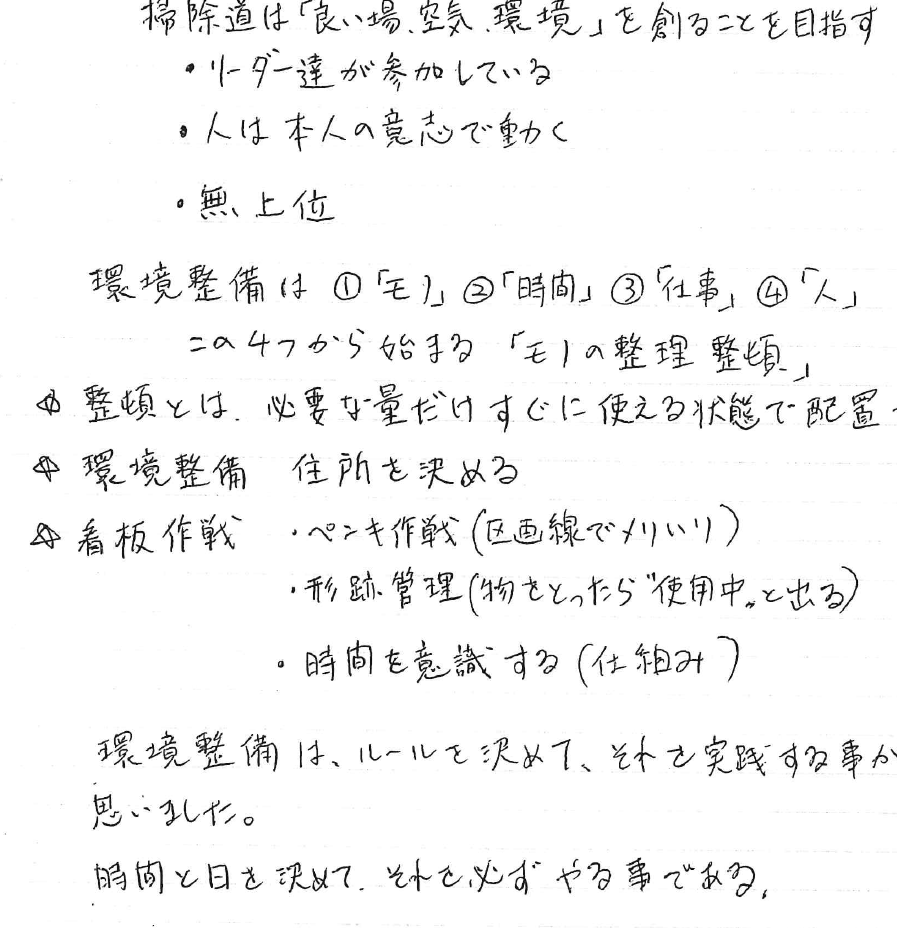 掃除道は「良い場、空気、環境」を創ることを目指す
・リーダー達が参加している
・人は本人の意志で動く
・無上位
環境整備は ①「モノ」②「時間」③「仕事」④「人」
この4つから始まる 「モノの整理 整頓」
☆ 整頓とは、必要な量だけすぐに使える状態で配置
☆ 環境整備 住所を決める
☆ 看板作戦 ・ペンキ作戦(区画線でメリハリ)
・形跡管理(物をとったら"使用中"と出る)
・時間を意識する(仕組み)
環境整備は、ルールを決めて、それを実践する事が
思いました。
時間と日を決めて、それを必ずやる事である。